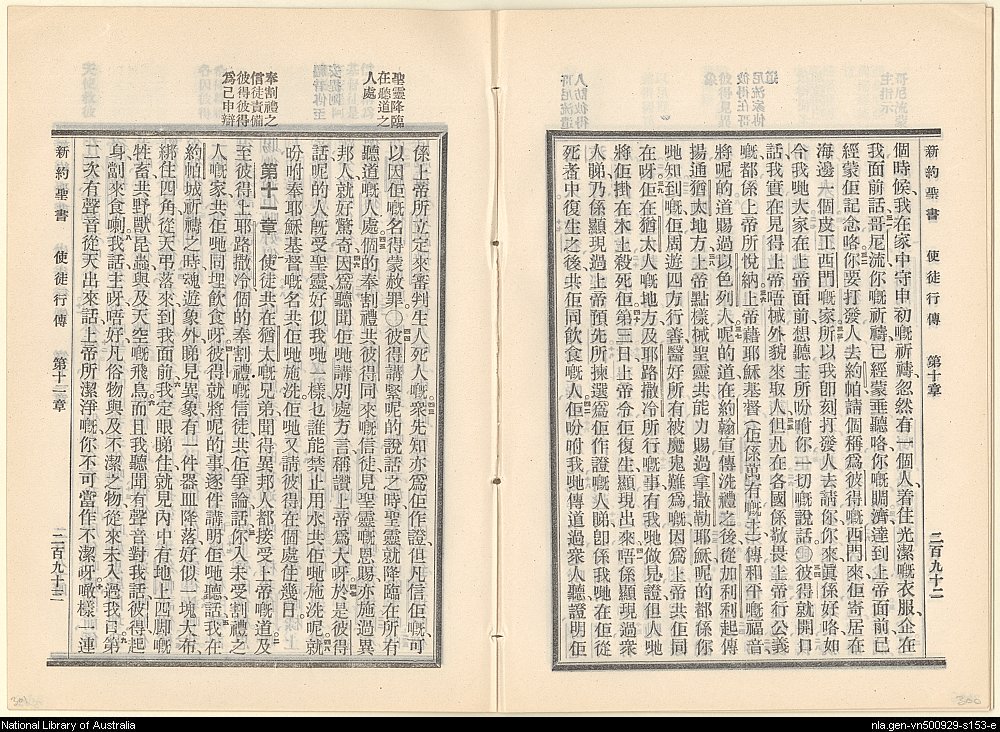 新約聖書 使徒行傳 第十章 二百九十二
個時候我在家中守申初嘅祈禱忽然有一個人着住光潔嘅衣服企在
我面前話哥尼流你嘅祈禱已經蒙垂聽咯你嘅賙濟達到上帝面前已
經蒙佢記念咯你要打發人去約帕請個稱為彼得嘅西門來佢寄居在
海邊一個皮工西門嘅家所以我卽刻打發人去請你你來眞係好咯如
今我哋大家在上帝面前想聽主所吩咐你一切嘅說話彼得就開口
話我實在見得上帝唔械外貌來取人但凡在各國係敬畏上帝行公義
嘅都係上帝所悅納上帝藉耶穌基督（佢係萬有嘅主）傳和平嘅福音
將呢的道賜過以色列人呢的道在約翰宣傳洗禮之後從加利利起傳
揚通猶太地方上帝點樣械聖靈共能力賜過拿撒勒耶穌呢的都係你
哋知到嘅佢周遊四方行善醫好所有被魔鬼難為嘅因為上帝共佢同
在呀佢在猶太人嘅地方及耶路撒冷所行嘅事有我哋做見證但人哋
將佢掛在木上殺死佢第三日上帝令佢復生顯現出來唔係顯現過衆
人睇乃係顯現過上帝預先所揀選為佢作證嘅人睇卽係我哋在佢從
死者中復生之後共佢同飲食嘅人佢吩咐我哋傳道過衆人聽證明佢
聖靈降臨
在聽道之
人處
奉割禮之
信徒責備
彼得彼得
為己申辯
係上帝所立定來審判生人死人嘅衆先知亦為佢作證但凡信佢嘅可
以因佢嘅名得蒙赦罪〇彼得講緊呢的說話之時聖靈就降臨在所有
聽道嘅人處個的奉割禮共彼得同來嘅信徒見聖靈嘅恩賜亦施過異
邦人就好驚奇因為聽聞佢哋講別處方言稱讚上帝為大呀於是彼得
話呢的人旣受聖靈好似我哋一樣乜誰能禁止用水共佢哋施洗呢就
吩咐奉耶穌基督嘅名共佢哋施洗佢哋又請彼得在個處住幾日
第十一章 使徒共在猶太嘅兄弟聞得異邦人都接受上帝嘅道及
至彼得上耶路撒冷個的奉割禮嘅信徒共佢爭論話你入未受割禮之
人嘅家共佢哋同埋飲食呀彼得就將呢的事逐件講明佢哋聽話我在
約帕城祈禱之時魂遊象外睇見異象有一件器皿降落好似一塊大布
綁住四角從天弔落來到我面前我定眼睇住就見內中有地上四脚嘅
牲畜共野獸昆蟲與及天空嘅飛鳥而且我聽聞有聲音對我話彼得起
身劏來食喇我話主呀唔好凡俗物與及不潔之物從來未入過我口第
二次有聲音從天出來話上帝所潔淨嘅你不可當作不潔呀噉樣一連
新約聖書 使徒行傳 第十一章 二百九十三
National Library of Australia
nla.gen-vn500929-s153-e